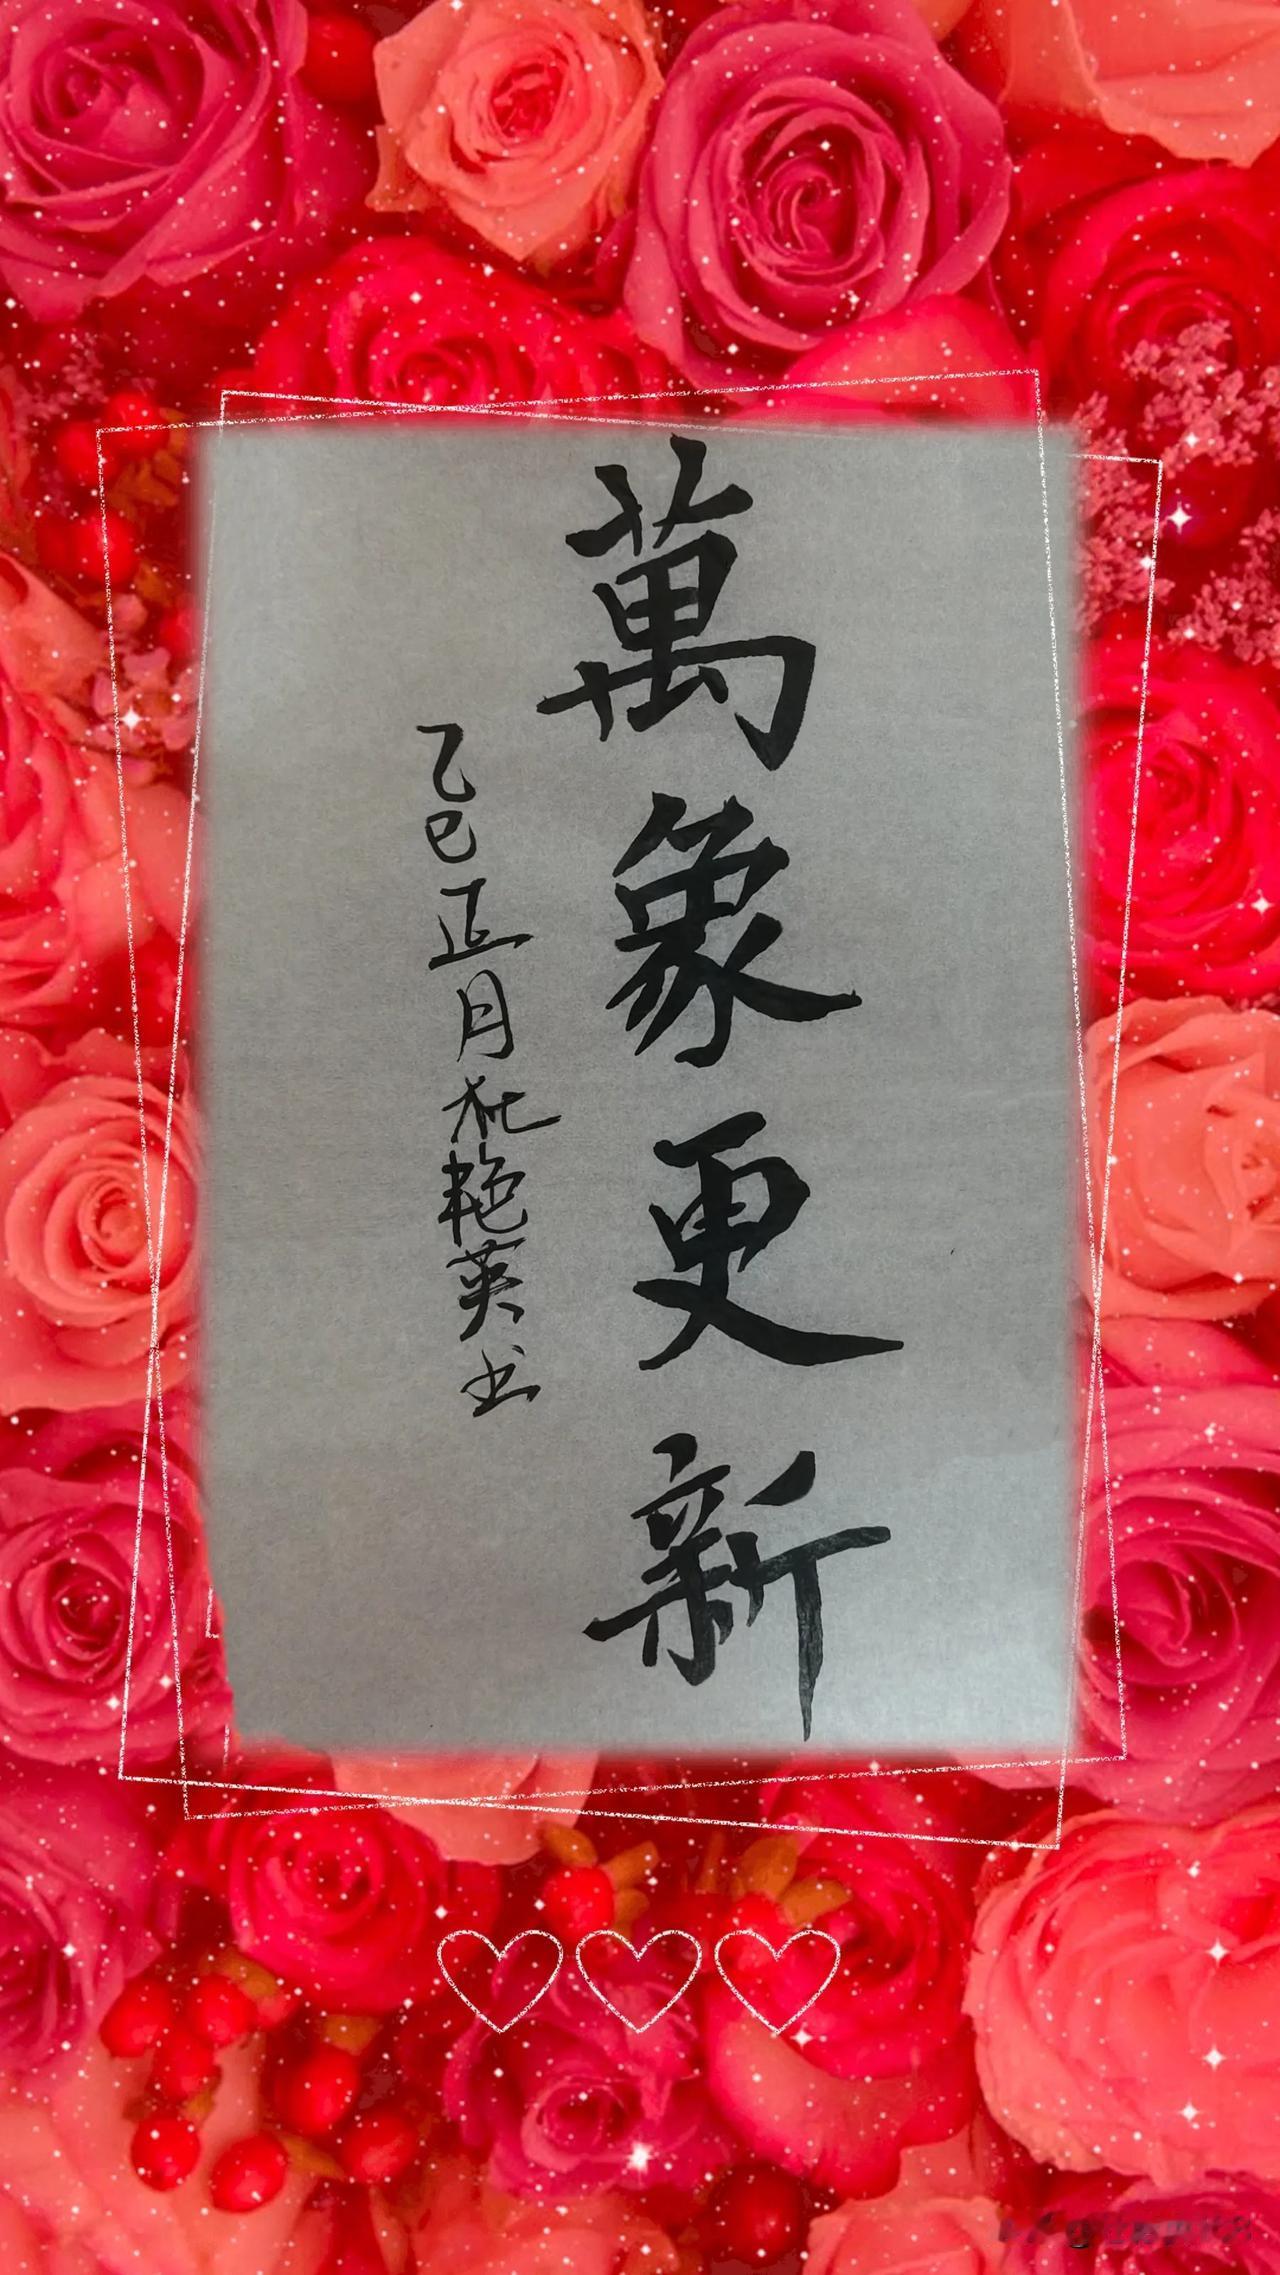 萬象更新
乙巳正月杜艳英书